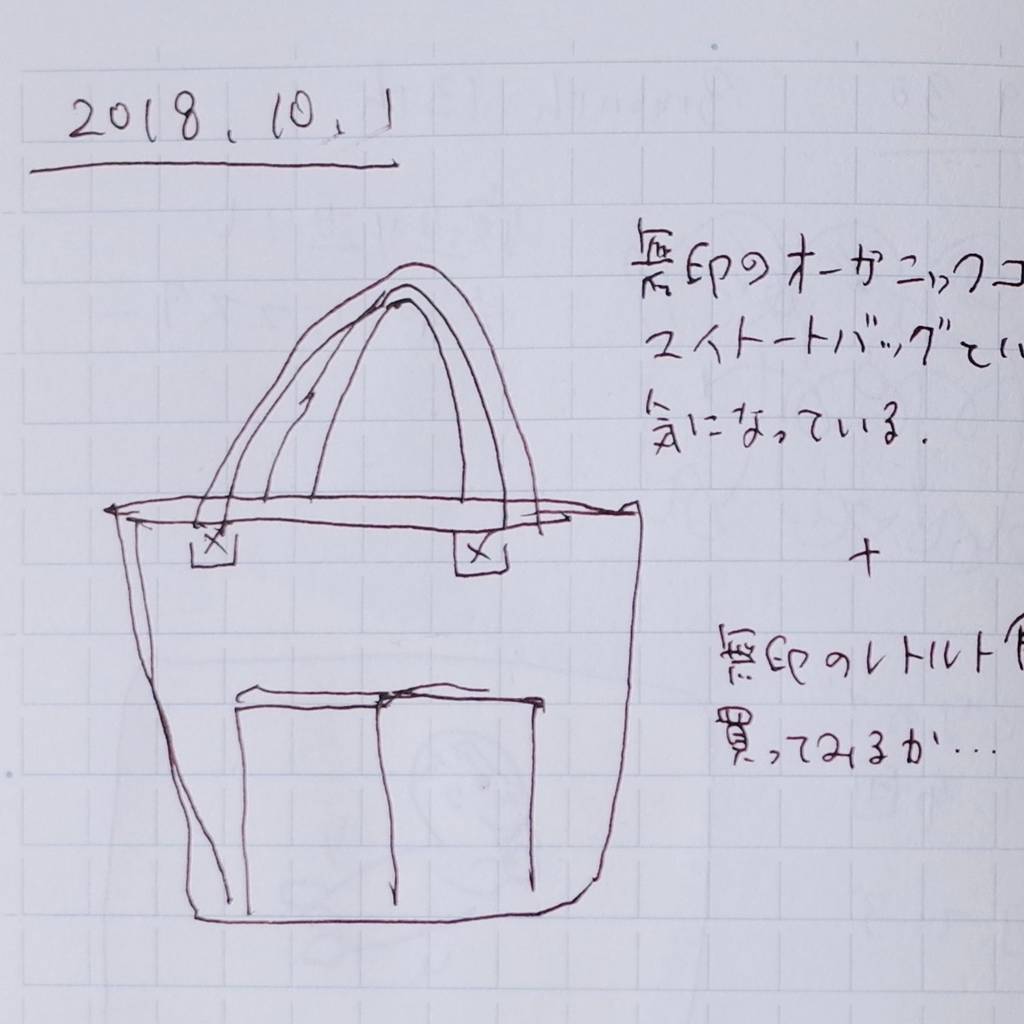 2018.10.1
無印のオーガニックコ
マイトートバッグてい
気になっている.
+
無印のレトルト
買ってみるか…